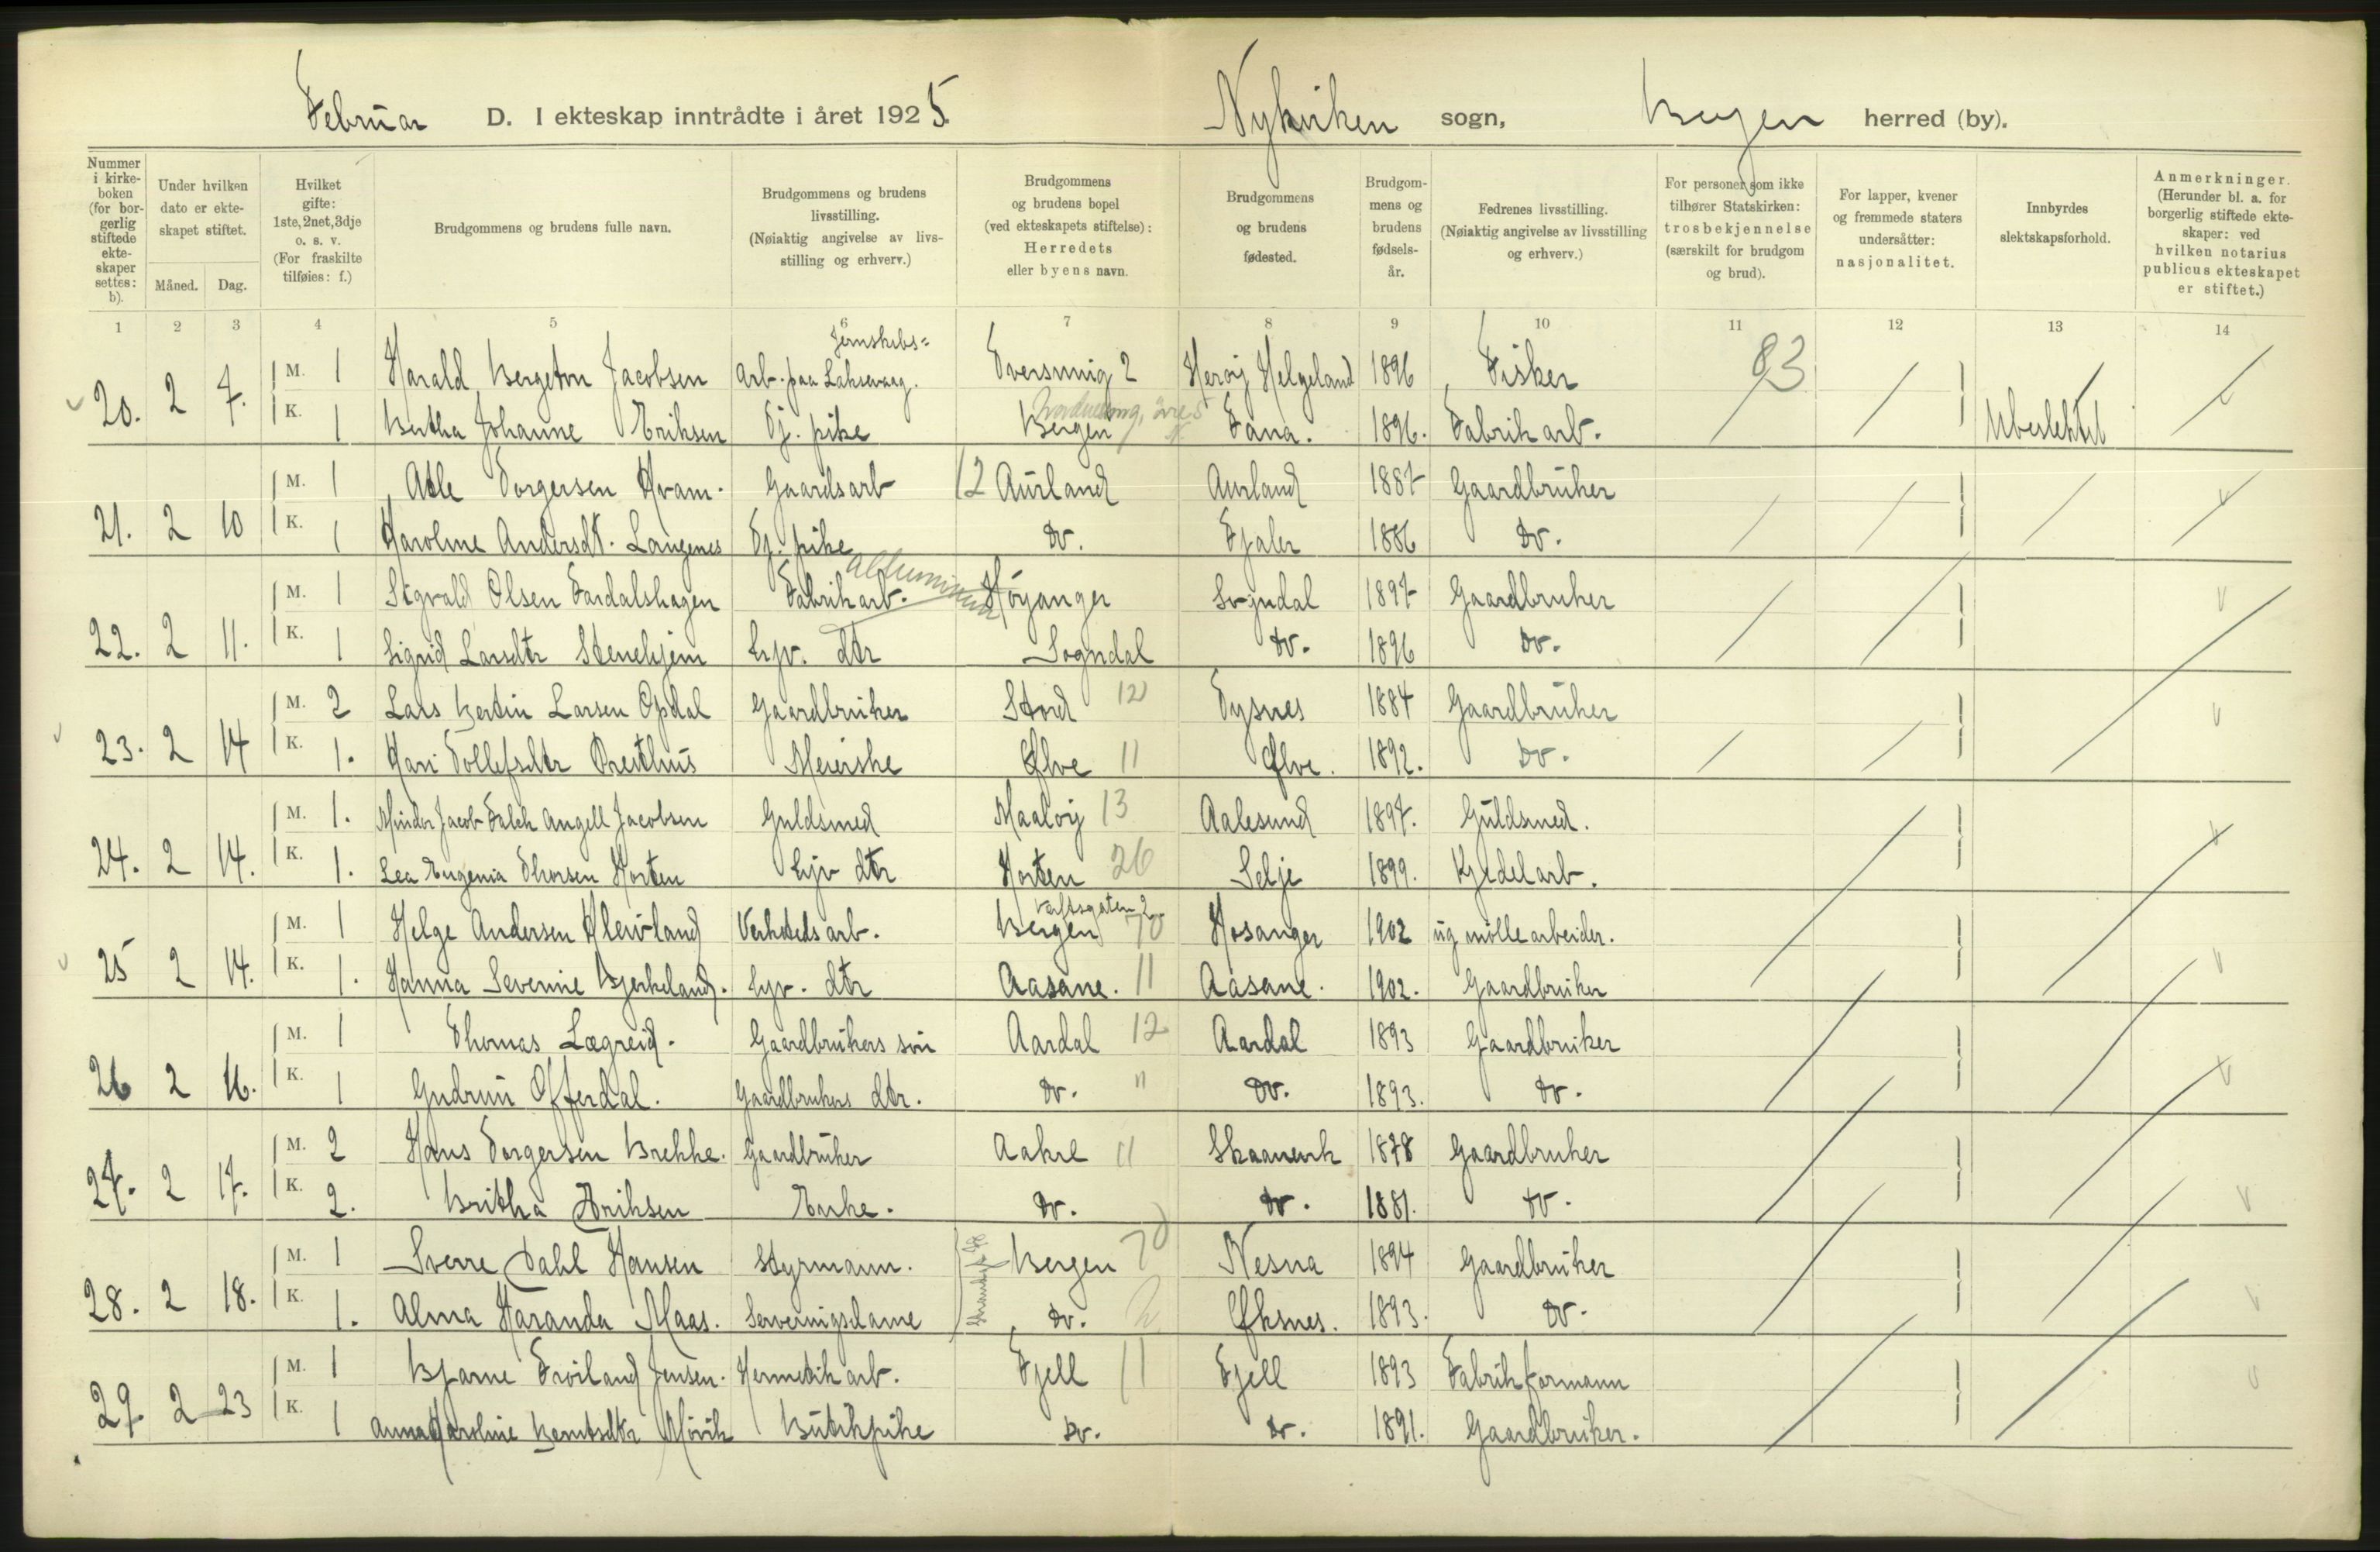 Februar D. I ekteskap inntrådte i året 1925. Nykirken sogn, Bergen herred (by).
Nummer i kirke-boken (for bor-gerlig stiftede ekte-skaper settes: b).
Under hvilken dato er ekte-skapet stiftet.
Måned. Dag.
Hvilket gifte: 1ste, 2net, 3dje o. s. v. (For fraskilte tilføies: f.)
Brudgommens og brudens fulle navn.
Brudgommens og brudens livsstilling. (Nøiaktig angivelse av livs-stilling og erhverv.)
Brudgommens og brudens bopel (ved ekteskapets stiftelse): Herredets eller byens navn.
Brudgommens og brudens fødested.
Brudgom-mens og brudens fødsels-år.
Fedrenes livsstilling. (Nøiaktig angivelse av livsstilling og erhverv.)
For personer som ikke tilhører Statskirken: trosbekjennelse (særskilt for brudgom og brud).
For lapper, kvener og fremmede staters undersåtter: nasjonalitet.
Innbyrdes slektskapsforhold.
Anmerkninger. (Herunder bl. a. for borgerlig stiftede ekte-skaper: ved hvilken notarius publicus ekteskapet er stiftet.)
1 2 3 4 5 6 7 8 9 10 11 12 13 14
Jernskibs=
20. 2 7. M. 1 Harald Bergeton Jacobsen Arb. paa Laksevaag. 2 Herøy Helgeland 1896 Fisker 83
K. 1 Bertha Johanne Eriksen Tj. pike Bergen Fana. 1896. Fabrik arb. Ubeslektet
21. 2 10 M. 1 Atle Torgersen Kvam. Gaardsarb 12 Aurland Aurland 1887 Gaardbruker
K. 1 Karoline Andersdt. Langenes Tj. pike do. Fjaler 1886 do.
22. 2 11. M. 1 Sigvald Olsen Fardalshagen Fabrik arb. Aluminium Høyanger Sogndal 1897 Gaardbruker
K. 1 Sigrid Larsdtr Stenehjem Hjv. dtr Sogndal do. 1896 do.
23. 2 14 M. 2 Lars Bertin Larsen Opdal Gaardbruker Stord 12 Tysnes 1884 Gaardbruker
K. 1. Kari Tollefsdtr Presthus Meierske Ølve 11 Ølve. 1892. do.
24. 2 14. M. 1. Minder Jacob Falch Angell Jacobsen Guldsmed Maaløy 13 Aalesund 1897. Guldsmed.
K. 1. Lea Eugenia Thorsen Horten Hjv dtr Horten 26 Selje 1899. Kjedelarb.
25 2 14. M. 1 Helge Andersen Kleivland Verkstedsarb. Bergen 70 Hosanger 1902 ug mølle arbeider.
K. 1. Hanna Severine Bjerkeland. Hjv. dtr Aasane. 11 Aasane. 1902. Gaardbruker
26 2 16. M. 1 Thomas Lægreid. Gaardbrukers søn Aardal 12 Aardal 1893 Gaardbruker
K. 1 Gudrun Offerdal. Gaardbrukers dtr. do. " do. 1893. do.
27. 2 17. M. 2 Hans Torgersen Brekke. Gaardbruker Aakre 11 Skaanevik 1878 Gaardbruker
K. 2. Britha Eriksen Enke. do. do. 1881. do.
28. 2 18. M. 1 Sverre Dahl Hansen Styrmann. Bergen 70 Nesna 1894 Gaardbruker
K. 1. Alma Haranda Maas. Serveringsdame do. Øksnes. 1893. do.
29. 2 23 M. 1 Bjarne Frøiland Jensen. Hermetik arb. Fjell 11 Fjell 1893 Fabrik formann
K. 1 Anna Karoline Berntsdtr Mørik Butikpike do. do. 1891. Gaardbruker.